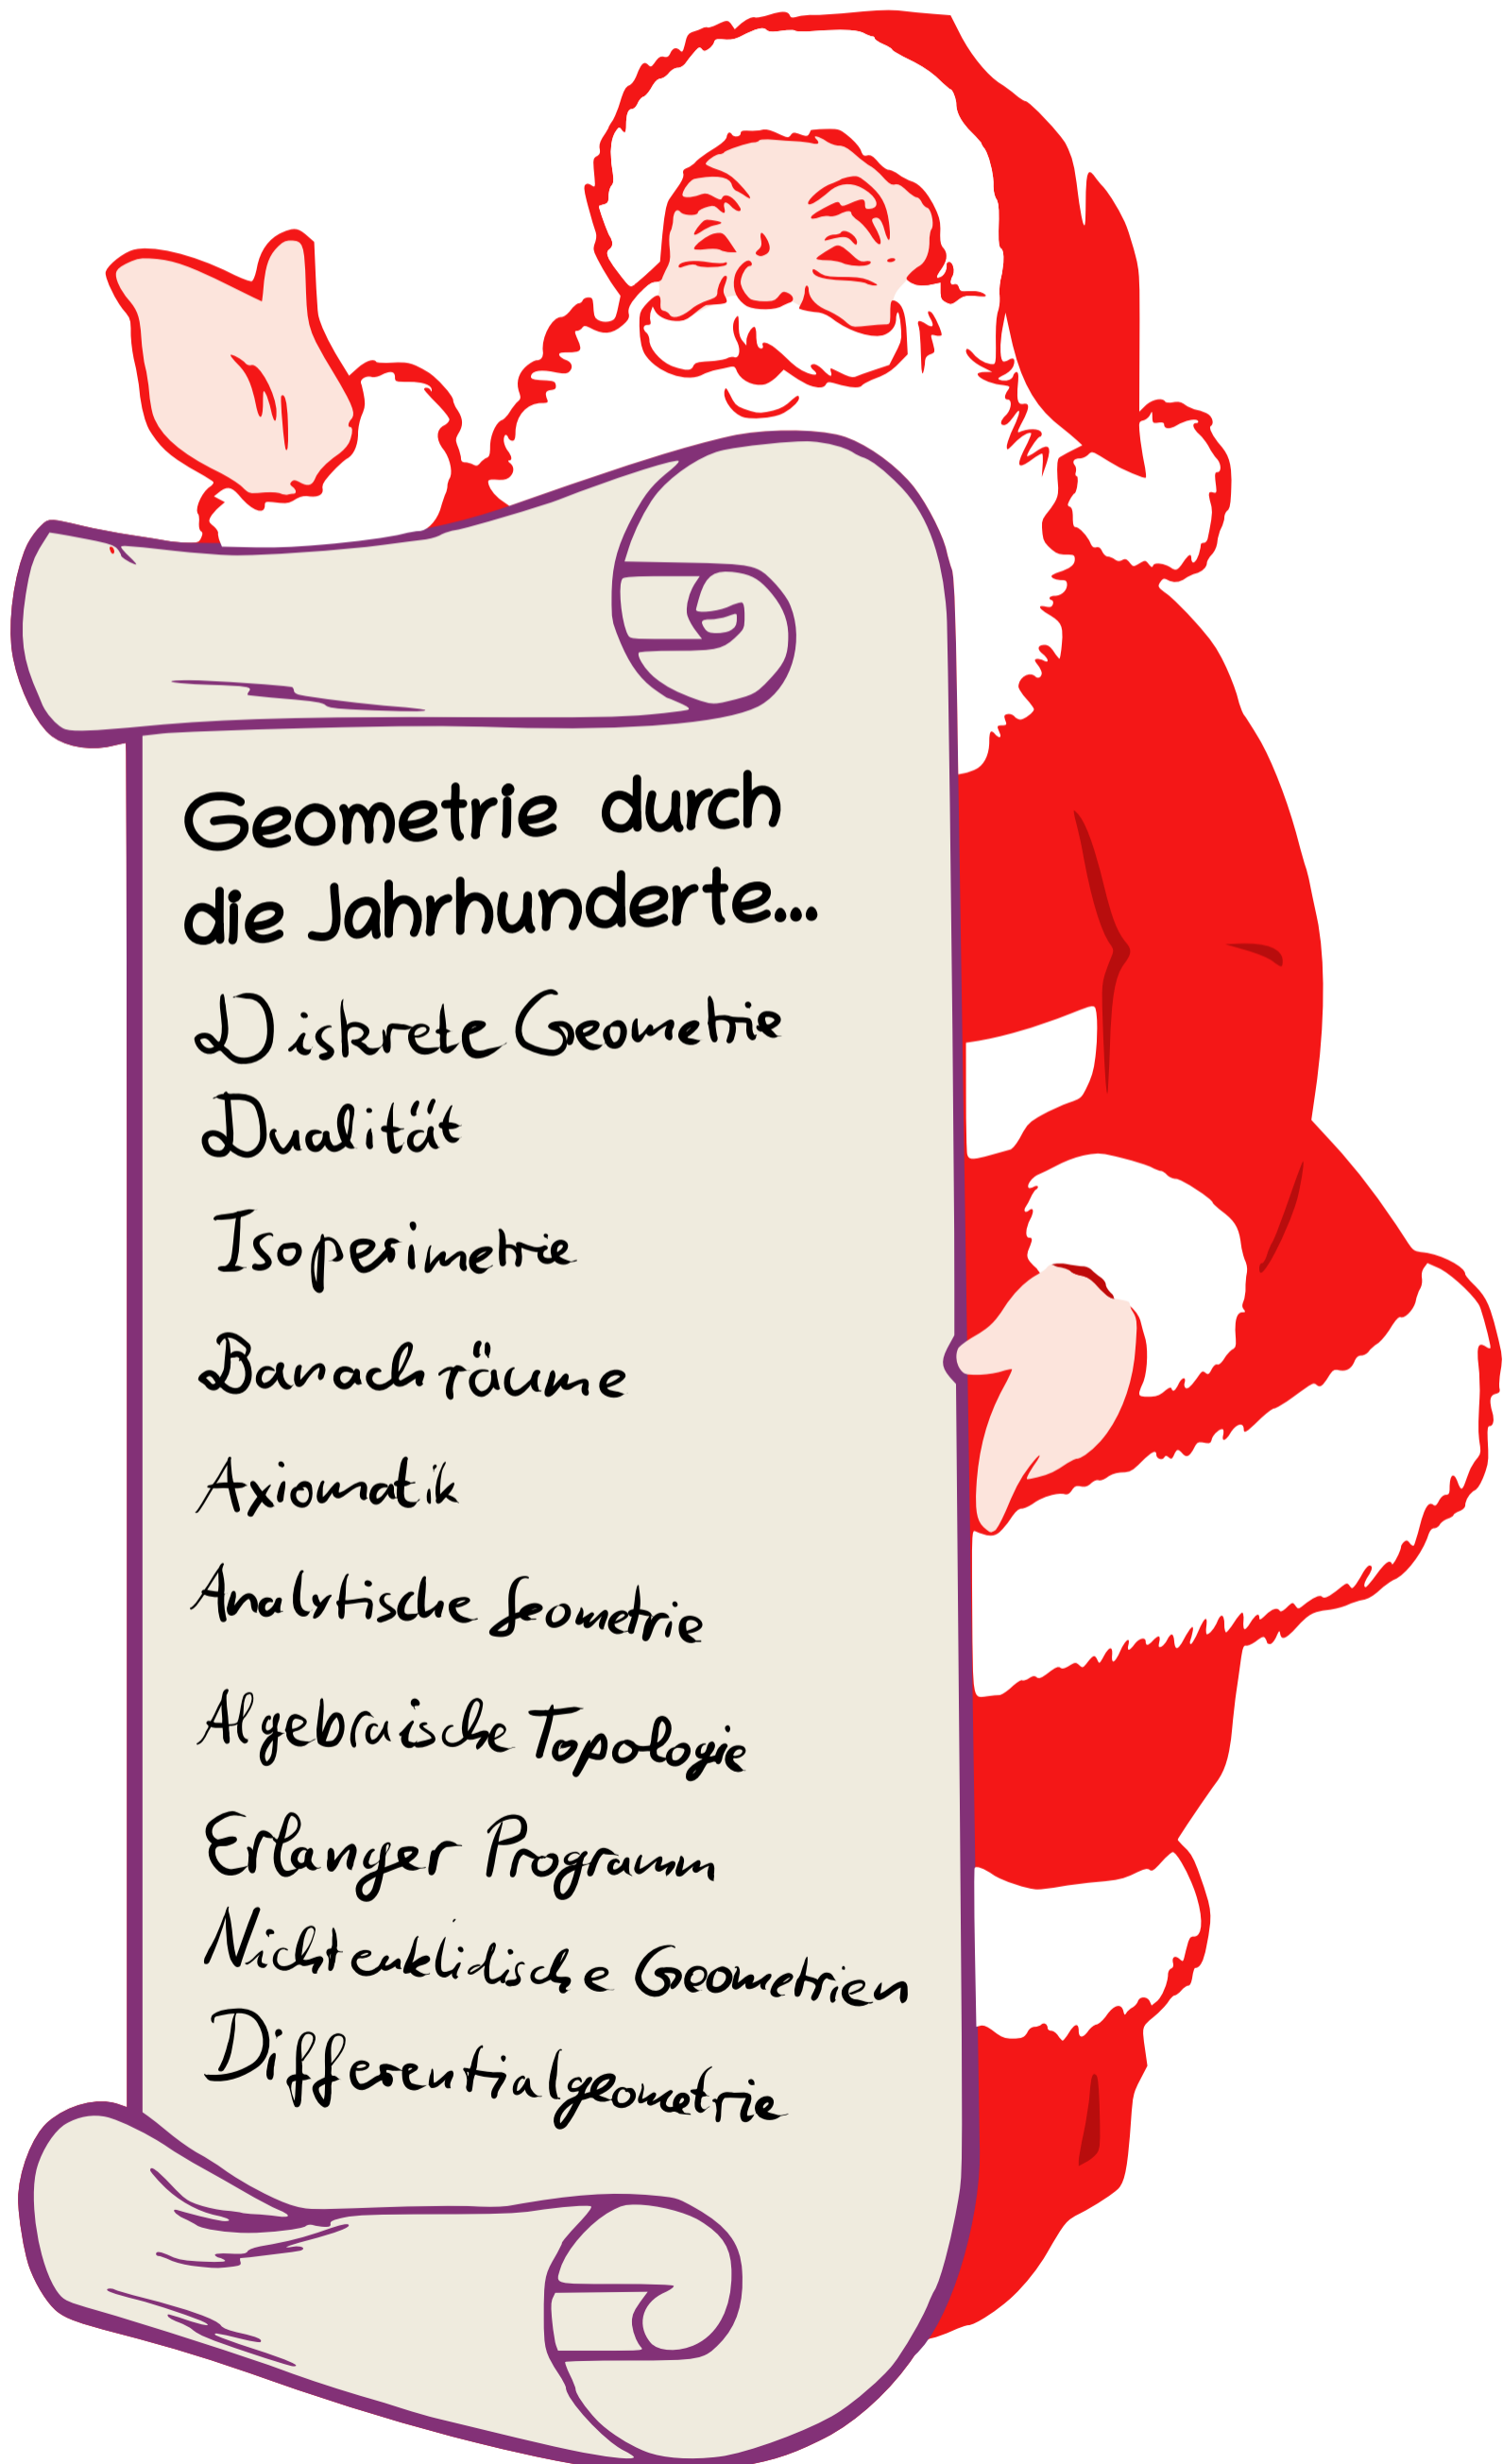 Geometrie durch
die Jahrhunderte...
Diskrete Geometrie
Dualität
Isoperimetrie
Banachräume
Axiomatik
Analytische Geometrie
Algebraische Topologie
Erlanger Programm
Nichteuklidische Geometrien
Differentialgeometrie